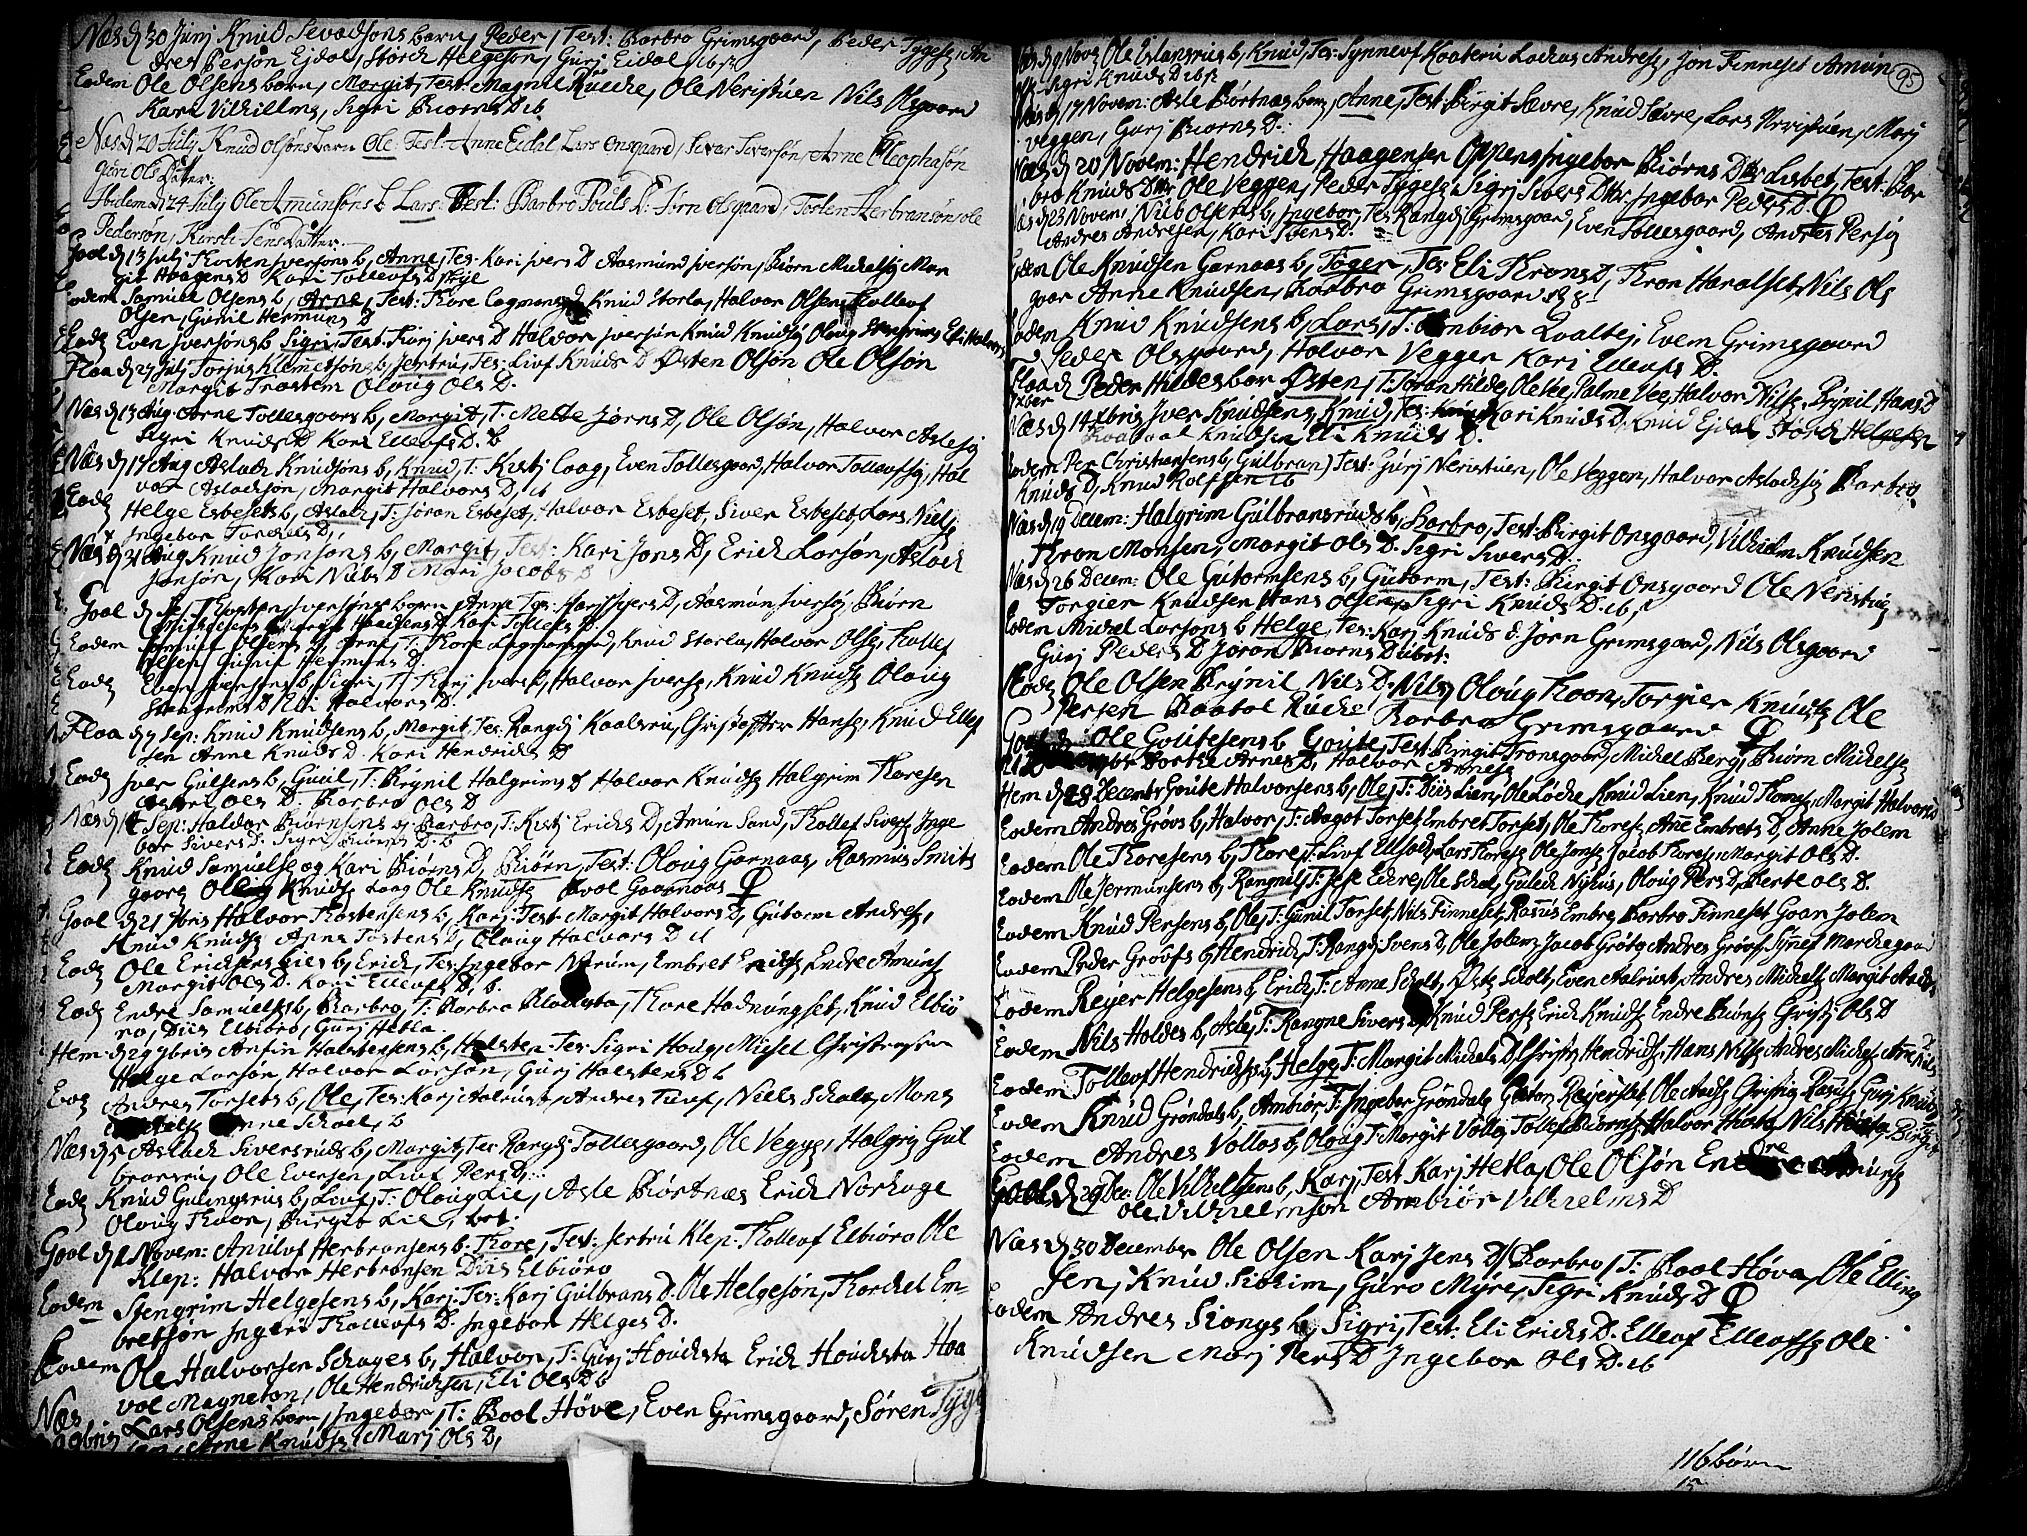 Næs d 30 Junj Knud Sevadsons barn, Peder, Test: Barbro Grimsgaard, Peder Tygesz An
dres Persøn Ejdal, Storck Helgesøn, Gurj Eidal
Eodem Ole Olsens barn, Margit, Test: Magnil Rucke, Ole Neristuen Nils Olsgaard
Kari Vilhillms, Sigri Biørns D ib
Næs d 20 July Knud Olsøns barn Ole. Test: Anne Eidal Lars Onsgaard, Sivar Siversøn, Arne Cleophasøn
Guri Ols Datter:
Ibidem d 24 July Ole Amunsøns b Lars: Test: Barbro Pouls D: Jørn Olsgaard, Tosten Herbransøn ole
Pedersøn, Kirsti Jens Datter.
Gool d 13 Julj Thosten Jversøns b, Anne, Tes: Kari Jvers D Aasmund Jversøn, Biørn Mickelsz Mar
git Haagens D Kari Tollevfs D
Eodem Samuel Olsens b, Arne, Test: Thore Lagmans Knud Storla, Halvor Olsen, Tholleuf
Olsen, Gunil Hermuns D
Eodz Even Jversøns b Sigri, Test: Karj Jvers D Halvor Jversøn Knud Knudsz Oloug Stengrims Eli Halvors
Flaa d 27 Julj Torjus Klemetsøns b, Jertru, Tes: Livf Knuds D Østen Olsøn Ole Olsøn
Margit Træstem Oloug Ols D.
Næs d 13 Aug: Arne Tollesgaars b, Margit, T: Mette Jørns D, Ole Olsøn, Halvor Aslesz
Sigri Knuds D Kari Ellevfs D. b
Næs d 17 Aug Aslach Knudsøns b, Knud, T: Kistj Laag, Even Tollesgaard, Halvor Tollevfsz, Hal
vor Aslachsøn, Margit Halvors D, ib
Eodz Helge Esbesets b, Aslach, T: Jøran Esbeset, Halvor Esbeset, Siver Esbeset, Lars Nielsz
Ingebor Torchels D,
Næs d 31 Aug Knud Jonsøns b, Margit, Test: Kari Jons D, Erich Larsøn, Aslach
Jonsøn, Kari Nils D Mari Jacobs D
Gool d Thosten Jversøns barn Anne Tes: Karj Jvers D, Aasmun Jversz, Biørn
Michelsens Margit Haagens D Kari Tollevfs D.
Eodem Samuel Olsens b, Arne, T: Thore Lagmansz, Knud Storla, Halvor Olsz, Tholleuf
Olsen, Gunil Hermuns D.
Eodz Even Jversens b, Sigri, T: Karj Jvers D, Halvor Jversz, Knud Knudsz Oloug
Stengrims D Eli Halvors D.
Flaa d 7 Sep: Knud Knudsens b, Margit, Tes: Rangdj Kaalsru, Christopher Hansz, Knud Ellef
sen Anne Knuds D. Kari Hendrichs D
Eodz Jver Gulsens b, Guul, T: Brynil Halgrims D Halvor Knudsz Halgrim Thoresen
Kari Ols D. Barbro Ols D
Næs d 14 Sep: Halvor Biørnsens b, Barbro, T: Kistj Erichs D, Amun Sand, Thollef Siversz Inge
bor Sivers D. Sigri Knuds D. b
Eodz Knud Samuelsz og Kari Biørns D, Biørn, Test: Oloug Garnaas, Rasmus Smits
gaarz Oloug Knudsz Laag Ole Knudsz Pool Gaarnaas
Gool d 21 7bris Halvor Thostensens b, Karj: Test: Margit Halvors D, Gutorm Andresz,
Knud Knudsz Anne Tostens D, Oloug Halvors D ib
Eodz Ole Erichsens Lies b, Erich, Tes: Ingebor Norum, Embret Erichsz Endre Amunsz
Margit Ols D. Kari Ellevfs D, b.
Eodz Endre Samuelsz b, Barbro, T: Barbro Plomsta, Thore Hadnungset, Knud Elbiø
rø, Diis Elbiørø, Gurj Hetla.
Hem d 29 7bris Anfin Halstensens b, Halsten Tes: Sigri Houg, Michel Christensen
Helge Larsøn Halvor Larsøn, Gurj Halstens D b
Eodz Andres Torsets b, Ole, Tes: Karj Aalrust, Andres Tuvf, Niels Schalt, Mons
Anne Schoel, b
Næs d 5 Aslach Siversruds b, Margit, Tes: Rangdj: Tollesgaard, Ole Veggz, Halgrj Gul
bransrú, Ole Evensen, Livf Pers D,
Eodz Knud Gulingsrus b, Livf, T: Oloug Lie, Asle Biørtnæs Erich Norhage
Oloug Thoon, Birgit Lie, bet:
Gool d 2 Novem: Amulvf Herbransens b: Thore, Test: Jertru Klep: Tholleuf Elbiørø Ole
Klep: Halvor Herbransen Diis Elbiørø
Eodem Stengrim Helgesens b, Karj: Tes: Karj Gulbrans D. Ole Helgesøn, Thorchel Em-
bretsøn Ingeri Tholleufs D. Ingebor Helges D.
Eodem Ole Halvorsen Schages b, Halvor, T: Gurj Houchsta Erich Houchsta Haa
vol Magneton, Ole Hendrichsen, Eli Ols D b
Næs Lars Olsens barn, Ingebor, T: Bool Høve, Even Grimsgaard, Søren Tyge
9bris sen, Arne Knudsz, Marj Ols D,
95
Næs d 9 Novz Ole Eslansrus b, Knud, Tes: Synnevf Kaaterú Lochas Andresz, Jon Finneset Amun
Sigri Knuds D ibz
Næs d 17 Novem: Asle Biørtnæs barn, Anne, Test: Birgit Sævre, Knud Sævre, Lars Neristuen, Marj
Veggen, Gurj Biørns D.
Næs d 20 Novem: Hendrich Haagensen Oppens Ingebor Biørns Dtter Lisbet, Test: Bar
bro Knuds Dtter Ole Veggen, Peder Tygesz, Sigri Sivers Dtr. Ingebor Peders D.
Næs d 23 Novem, Nils Olsens b, Ingebor, Tes: Rangdj Grimsgaard, Even Tollesgaard, Andres Persz
Andres Andresen, Kari Svens D.
Eodem Ole Knudsen Garnaas b, Tøger, Tes: Eli Throns D, Thron Haralset, Nils Ols
gaar Anne Knudsen, Barbro Grimsgaard
Eodem Knud Knudsens b, Lars, T: Anbiør Qvaltej, Even Grimsgaard
Peder Olsgaard, Halvor Vegger Kari Ellevfs D.
Flaa d Peder Hildes bar Østen, T: Jøran Hilde, Ole Vee, Palme Vee, Halvor Nilsz, Brynil Hans D
Næs d 14 Xbris Jver Knudsens, Knud, Tes: Kari Knuds D, Knud Ejdal Storch Helgesen
Knudsen Eli Knuds D.
Eodem Per Christiansens b, Gulbran, Test: Gurj Neristuen, Ole Veggen, Halvor Aslachsz Barbro
Knuds D, Knud Rolfsen ib
Næs d 19 Decem: Halgrim Gulbransruds b, Barbro, Test: Birgit Onsgaard, Vilhelm Knudsen
Thron Monsen, Margit Ols D. Sigri Sivers D.
Næs d 26 Decem: Ole Gutormsens b, Gutorm, Test: Birgit Onsgaard Ole Neristuz
Torgier Knudsen Hans Olsen, Sigri Knuds D. ib
Eodem Michel Larsøns b Helge, Tes: Karj Knuds d. Jørn Grimsgaard, Nils Olsgaard
Gurj Peders D Jøran Biørns D ibet:
Eodz Ole Olsen Brynil Nils D. Nils, Oloug Thoon, Torgier Knudsz Ole
Persen Baatol Rucke Barbro Grimsgaard
Gool d Ole Goutesens b Goute, Test: Birgit Tronsgaard, Michel Berg, Biørn Michelsz
Dorthe Arnes D, Halvor Arnesz
Hem d 28 Decembr Goute Halvorsens b, Ole, T: Diis Lien, Ole Løcke Knud Lien, Knud Thomsz, Margit Halvors D
Eodem Andres Grøvs b, Halvor, T: Aagot Torset Embret Torset, Ole Thoresz Añe Embrets D, Anne Jolem
Eodem Ole Thoresens b, Thore, T: Livf Ulsach, Lars Thoresz Ole Jonsz Jacob Thoresz Margit Ols D.
Eodem Ole Jermunsens b, Rangnil, T: Jese Eckre, Ole Schal, Gulech Nihus, Oloug Pers D, Berte Ols D.
Eodem Knud Persens b, Ole, T: Gunil Torset, Nils Finneset, Rasmus Embre, Barbro Finneset Goan Jolem
Eodem Peder Grøvfs b, Hendrich, T: Rangdj Svens D, Ole Jolemz Jacob Grøtø Andres Grøvf, Synef Marchegaard
Eodem Reyer Helgesens b, Erich, T: Anne Scholt, Østz Scholt, Even Aalrust, Andres Michelsz, Margit
Eodem Nils Holdes b, Asle, T: Rangne Sivers D, Knud Persz Erich Knudsz Endre Biørnsz Christj Ols D
Eodem Tolleuf Hendrichsz b, Helge, T: Margit Michels D, Christz Hendrichsz, Hans Nilsz, Andres Michelsz Arne Nils D
Eodem Knud Grøndals b, Ambiør, T: Ingebor Grøndal, Gutor Reyerset, Ole Christz Rasusz Gurj Knuds
Eodem Andres Vollas b, Oloug, T: Margit Volla, Tollef Biørnsz, Halvor Hota, Nils Birgit
Gool d 29 De: Ole Vilhelmsens b, Karj, Test: Karj Hetla, Ole Olsøn Endre Amunsz
Ole Vilhelmsøn Ambiør Vilhelms D
Næs d 30 December Ole Olsen Karj Jens D, Barbro, T: Baal Høva, Ole Elling
sen, Knud Liokim, Guro Myre, Sigri Knuds D
Eodem Andres Siongs b, Sigri, Test: Eli Erichs D. Ellevf Ellevfsz Ole
Knudsen Marj Pers D Ingebor Ols D. ib
116 børn
15